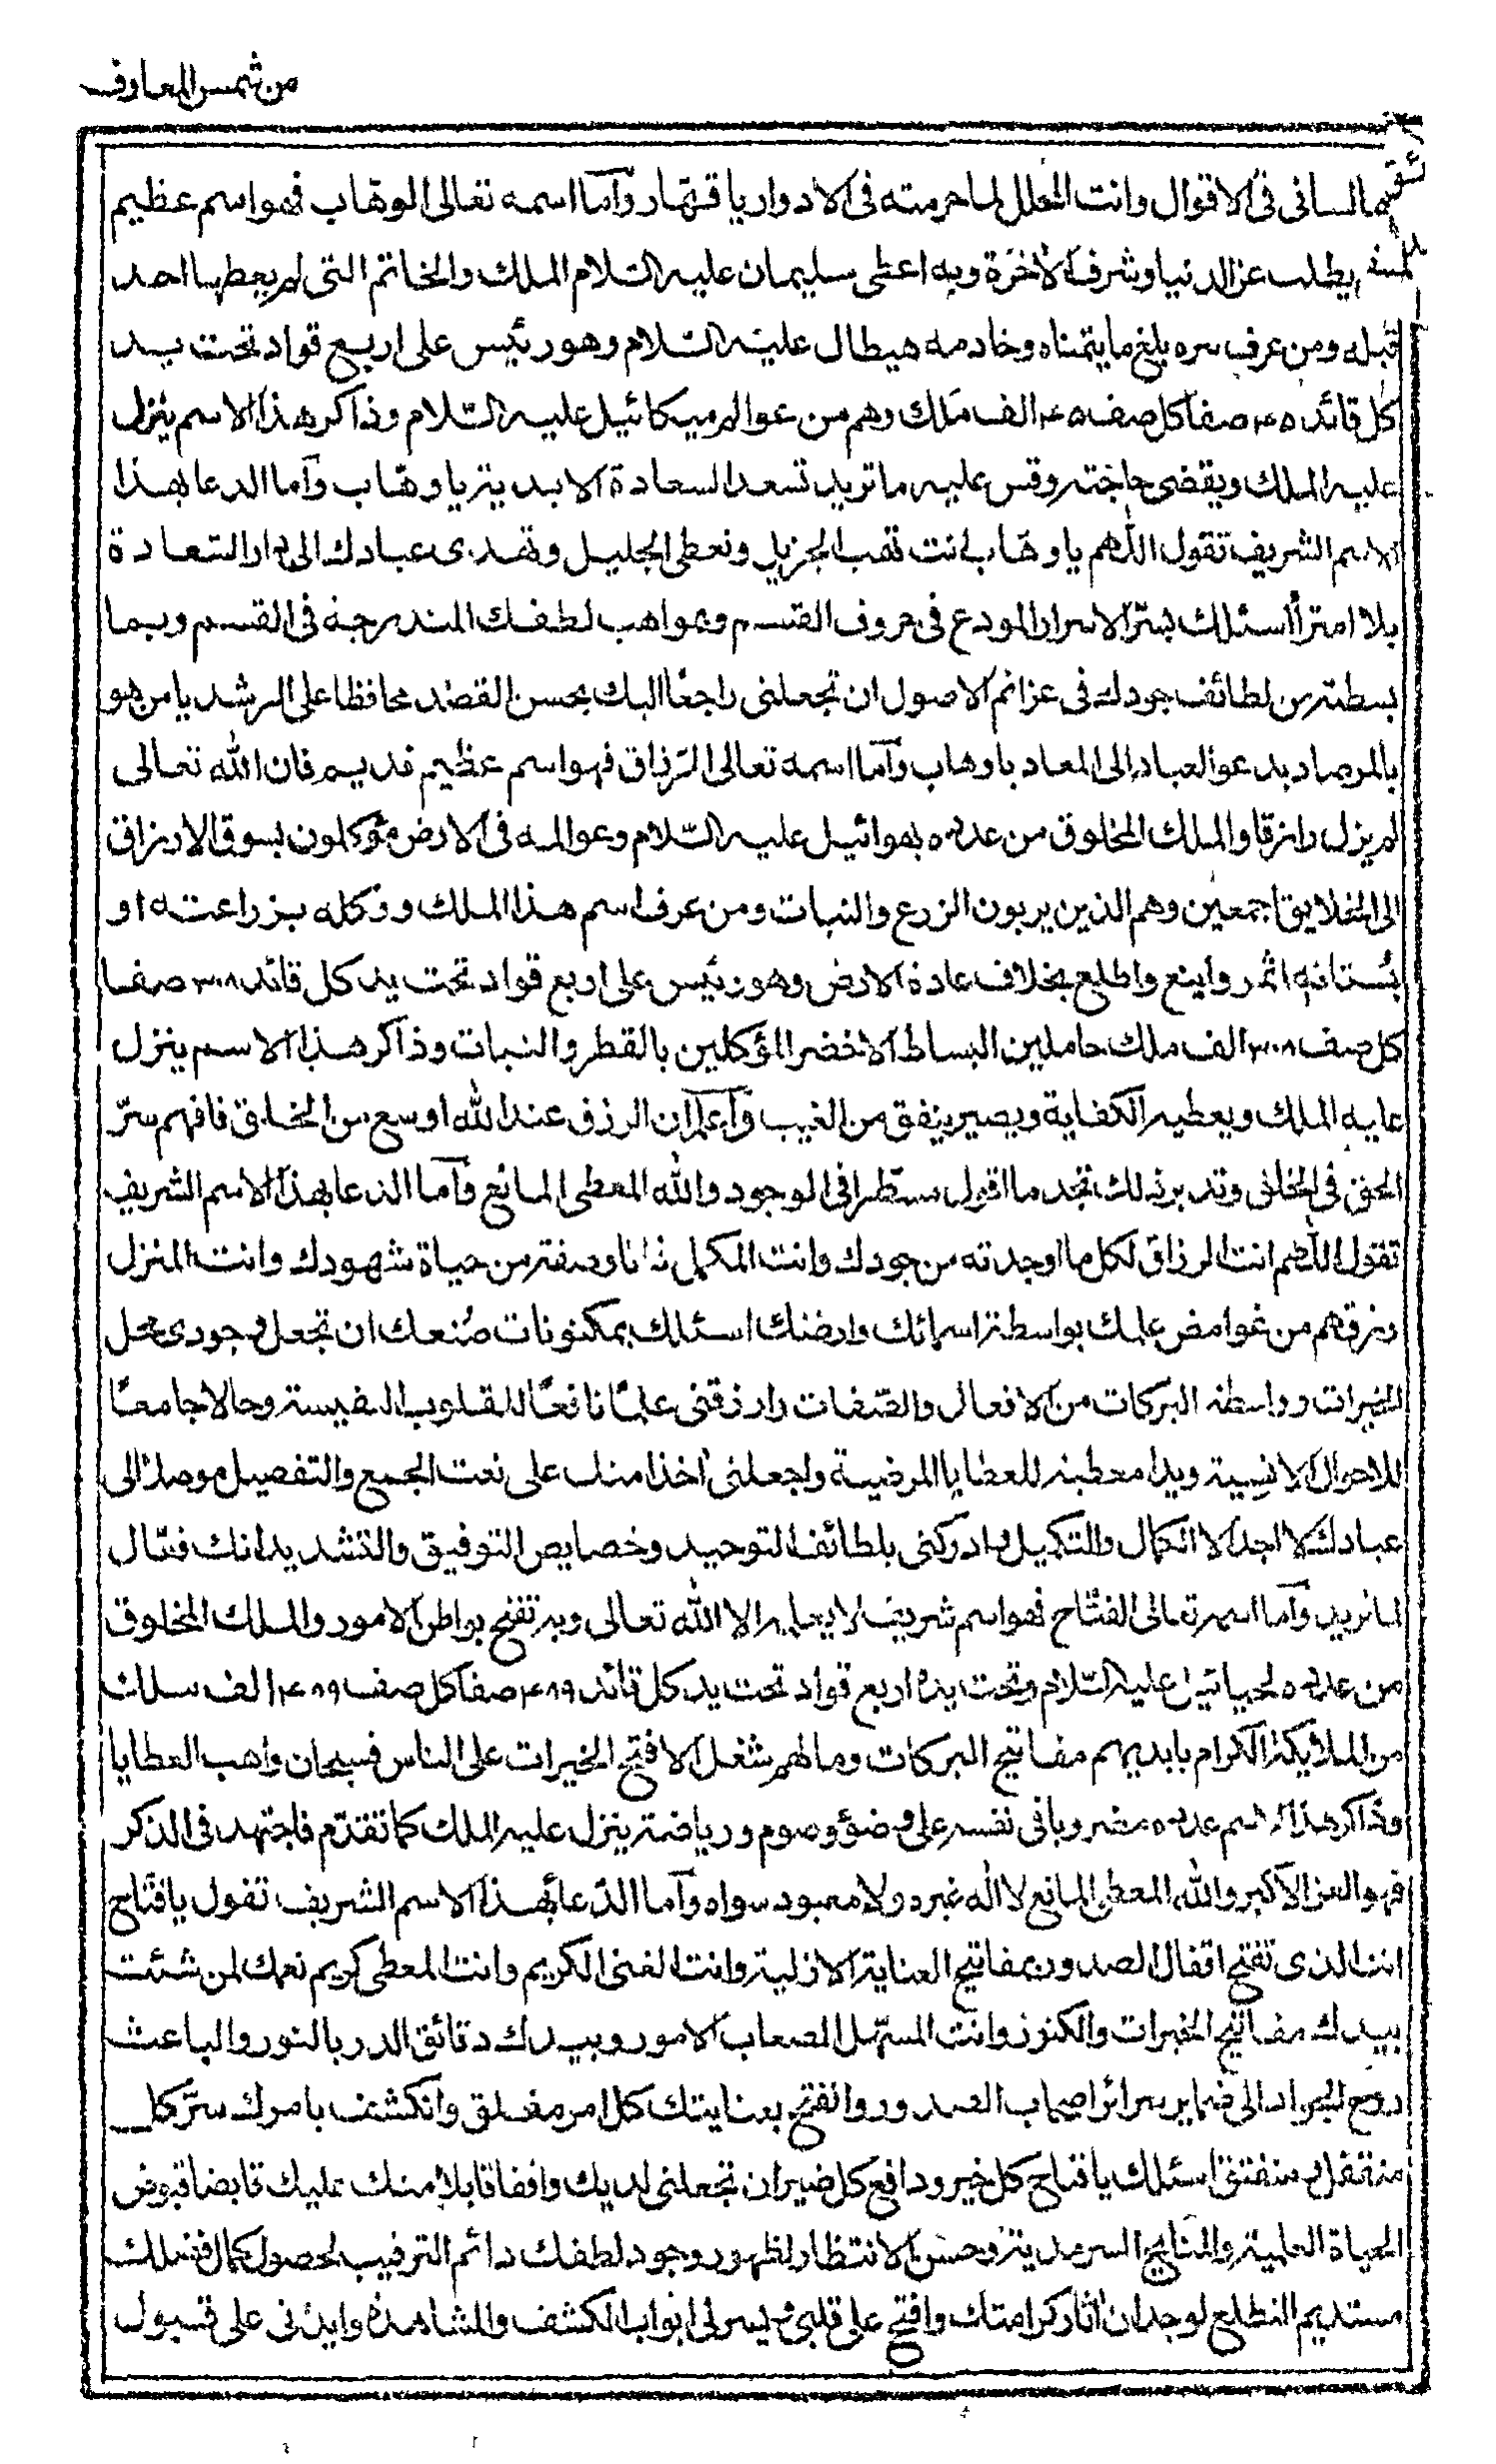 من شمس المعارف
لسانى فى الاقوال وانت المحلل لما حرمته فى الادوار يا قهار وآما اسمه تعالى الوهاب فهو اسم عظيم
يطلب عز الدنيا وشرف الاخرة وبه اعطى سليمان عليه السلام الملك والخاتم التى لم يعطها احد
قبله ومن عرف سره بلغ ما يتمناه وخادمه هيطال عليه السلام وهو رئيس على اربع قواد تحت يد
كل قائد ٤٥ صفا كل صف ٤٥ الف ملك وهم من عوالم ميكائيل عليه السلام وذاكر هذا الاسم ينزل
عليه الملك ويقضى حاجته وقس عليه ما تريد تسعد السعادة الابدية يا وهاب وآما الدعا بهذا
الاسم الشريف تقول اللهم يا وهاب انت تهب الجزيل وتعطى الجليل وتهدى عبادك الى دار السعادة
بلا امترأ اسئلك بسر الاسرار المودع فى حروف القسم وبمواهب لطفك المندرجة فى القسم وبما
بسطته من لطائف جودك فى عزائم الاصول ان تجعلنى راجعًا اليك بحسن القصد محافظا على الرشد يا من هو
بالمرصاد يدعو العباد الى المعاد يا وهاب وآما اسمه تعالى الرزاق فهو اسم عظيم قديم فان الله تعالى
لم يزل رازقا والملك المخلوق من عدده بهوائيل عليه السلام وعوالمه فى الارض مؤكلون بسوق الارزاق
الى الخلايق اجمعين وهم الذين يربون الزرع والنبات ومن عرف اسم هذا الملك ووكله بزراعته او
بستانه اثمر واينع واطلع بخلاف عادة الارض وهو رئيس على اربع قواد تحت يد كل قائد ٣٠٨ صفا
كل صف ٣٠٨ الف ملك حاملين البساط الاخضر المؤكلين بالقطر والنبات وذاكر هذا الاسم ينزل
عليه الملك ويعطيه الكفاية ويصير ينفق من الغيب وآعلم ان الرزق عند الله اوسع من الخلق فافهم سر
الحق فى الخلق وتدبر ذلك تجد ما اقول مسطرا فى الوجود والله المعطى المانع وآما الدعا بهذا الاسم الشريف
تقول اللهم انت الرزاق لكل ما اوجدته من جودك وانت المكمل ذاتا وصفة من حياة شهودك وانت المنزل
رزقهم من غوامض علمك بواسطة اسمائك وارضك اسئلك بمكنونات صنعك ان تجعل وجودى محل
الخيرات وواسطة البركات من الافعال والصفات وارزقنى علمًا نافعًا للقلوب النفيسة وحالا جامعًا
للاحوال الانسية ويدا معطية للعطايا المرضية واجعلنى اخذا منك على نعت الجمع والتفصيل موصلا الى
عبادك لا اجد الا الكمال والتكميل وادركنى بلطائف التوحيد وخصايص التوفيق والتشديد انك فعّال
لما تريد وآما اسمه تعالى الفتاح فهو اسم شريف لا يعلمه الا الله تعالى وبه تفتح بواطن الامور والملك المخلوق
من عدده لحيائيل عليه السلام وتحت يده اربع قواد تحت يد كل قائد ٤٨٩ صفا كل صف ٤٨٩ الف ملك
من الملايكة الكرام بايديهم مفاتيح البركات وما لهم شغل الا فتح الخيرات على الناس فسبحان واهب العطايا
وذاكر هذا الاسم عدده مضروبا فى نفسه على وضؤ وصوم ورياضة ينزل عليه الملك كما تقدّم فاجتهد فى الذكر
فهو العز الاكبر والله المعطى المانع لا اله غيره ولا معبود سواه وآما الدعا بهذا الاسم الشريف تقول يا فتاح
انت الذى تفتح اقفال الصدور بمفاتيح العناية الازلية وانت الغنى الكريم وانت المعطى كريم نعمك لمن شئت
بيدك مفاتيح الخيرات والكنوز وانت المسهل المصعاب الامور وبيدك دقائق الدر بالنور والباعث
روح الى ضماير سرائر اصحاب الصدور وانفتح بعنايتك كل امر مغلق وانكشف بامرك سر كل
منفتق اسئلك يا فتاح كل خير ودافع كل ضير ان تجعلنى لديك واقفا قابلا منك عليك قابضا قبوض
الحياة العلمية والمنايح السرمدية وحسن الانتظار لظهور وجود لطفك دائم الترقيب لحصول كمال فضلك
مستديم التطلع لوجدان اثار كرامتك وافتح على قلبى ويسر لى ابواب الكشف والمشاهدة وايدنى على قبول